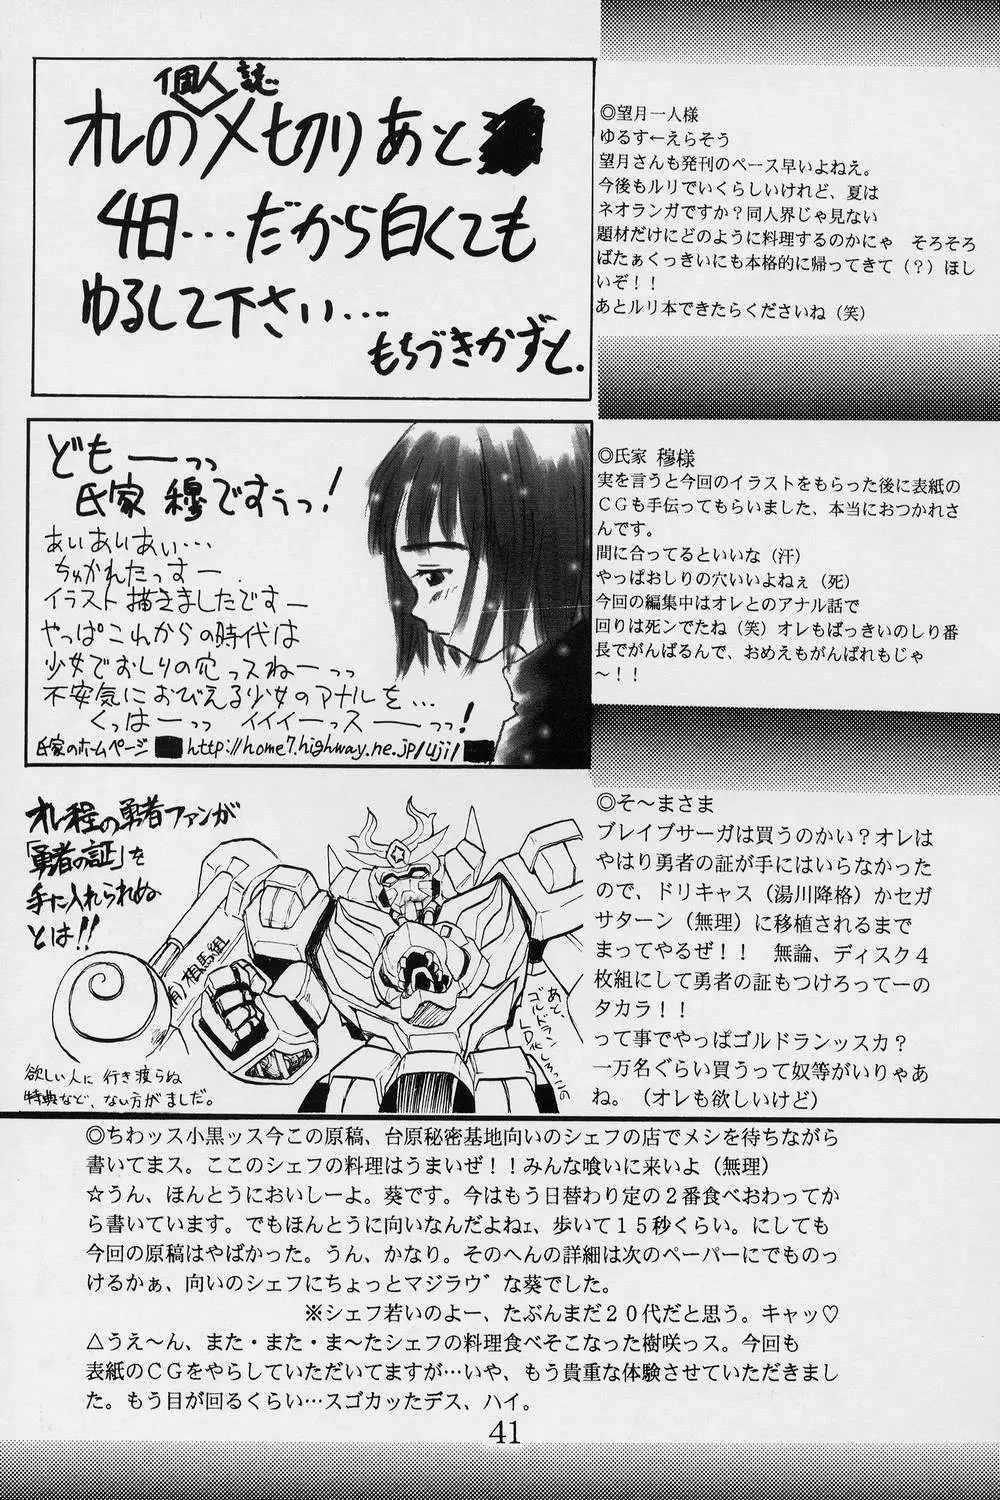 個人誌
オレの〆切りあと
4日…だから白くても
ゆるして下さい…
もちづきかずと.
◎望月一人様
ゆるすーえらそう
望月さんも発刊のペース早いよねえ。
今後もルリでいくらしいけれど、夏は
ネオランガですか？同人界じゃ見ない
題材だけにどのように料理するのかにゃ　そろそろ
ばたぁくっきいにも本格的に帰ってきて（？）ほし
いぞ！！
あとルリ本できたらくださいね（笑）
どもーっっ
氏家 穆ですぅっ！
あいあいあい…
ちゅかれたっすー
イラスト描きましたですー
氏家のホームページ
http://home7.highway.ne.jp/uji/
◎氏家 穆様
実を言うと今回のイラストをもらった後に表紙の
ＣＧも手伝ってもらいました、本当におつかれさ
んです。
間に合ってるといいな（汗）
オレ程の勇者ファンが
「勇者の証」を
手に入れられぬ
とは!!
相馬組
あと、
ゴルドラン
欲しい人に行き渡らぬ
特典など、ない方がましだ。
◎そ～まさま
ブレイブサーガは買うのかい？オレは
やはり勇者の証が手にはいらなかった
ので、ドリキャス（湯川降格）かセガ
サターン（無理）に移植されるまで
まってやるぜ！！　無論、ディスク４
枚組にして勇者の証もつけろってーの
タカラ！！
って事でやっぱゴルドランッスカ？
一万名ぐらい買うって奴等がいりゃあ
ね。（オレも欲しいけど）
◎ちわッス小黒ッス今この原稿、台原秘密基地向いのシェフの店でメシを待ちながら
書いてまス。ここのシェフの料理はうまいぜ！！みんな喰いに来いよ（無理）
☆うん、ほんとうにおいしーよ。葵です。今はもう日替わり定の２番食べおわってか
ら書いています。でもほんとうに向いなんだよねェ、歩いて１５秒くらい。にしても
今回の原稿はやばかった。うん、かなり。そのへんの詳細は次のペーパーにでものっ
けるかぁ、向いのシェフにちょっとマジラヴ゛な葵でした。
※シェフ若いのよー、たぶんまだ２０代だと思う。キャッ♡
△うえ～ん、また・また・ま～たシェフの料理食べそこなった樹咲っス。今回も
表紙のＣＧをやらしていただいてますが…いや、もう貴重な体験させていただきまし
た。もう目が回るくらい…スゴカッたデス、ハイ。
41